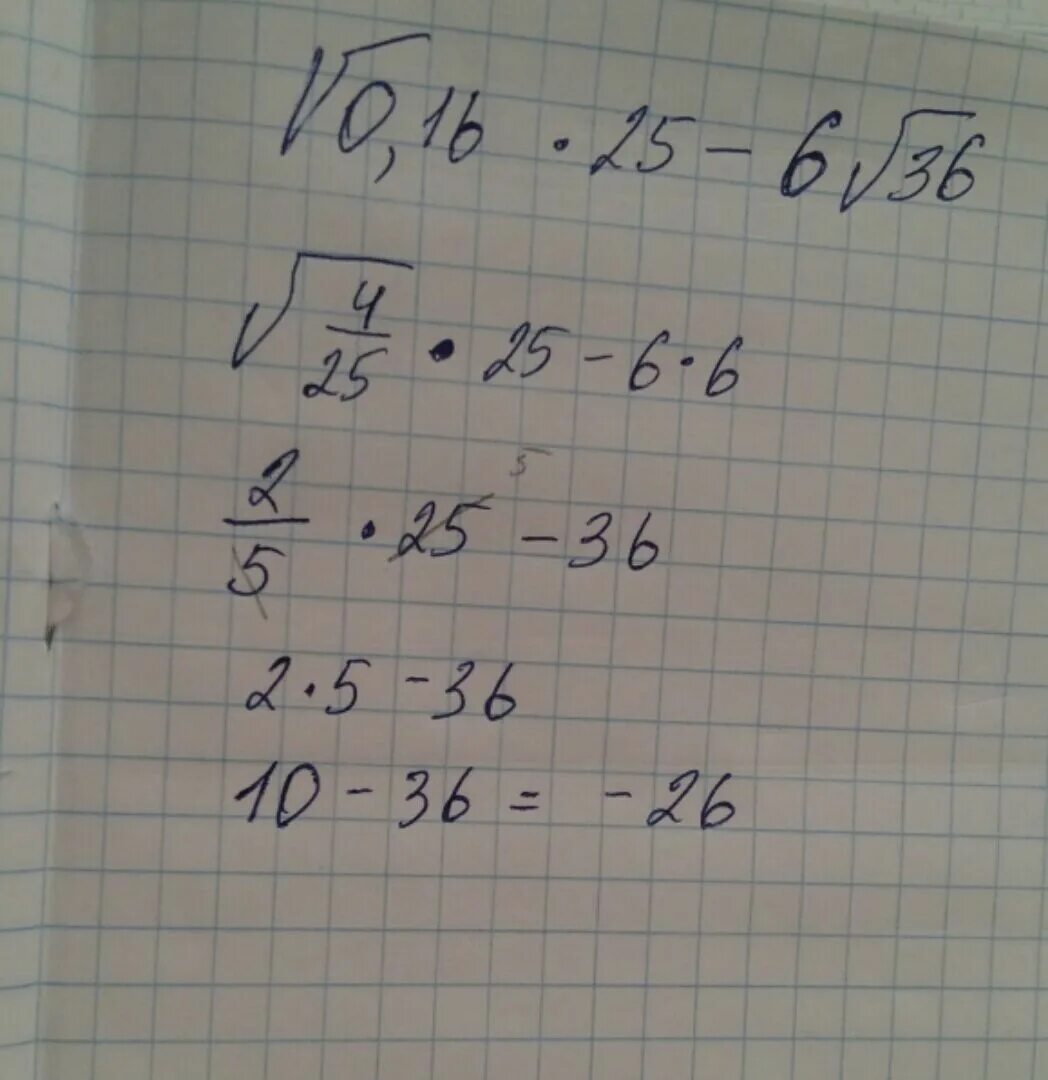 √0,16 · 25 - 6√36
√4/25 · 25 - 6·6
2/5 · 25 5 - 36
2·5 - 36
10 - 36 = - 26